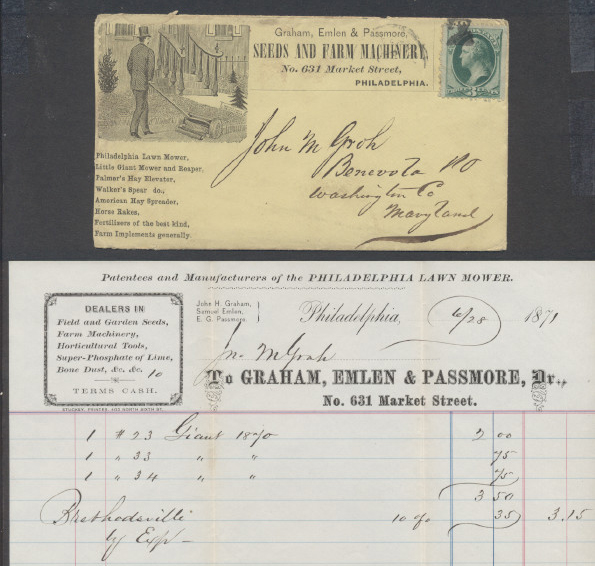 Graham, Emlen & Passmore,
SEEDS AND FARM MACHINERY,
No. 631 Market Street,
PHILADELPHIA.
Philadelphia Lawn Mower,
Little Giant Mower and Reaper,
Palmer's Hay Elevator,
Walker's Spear do.,
American Hay Spreader,
Horse Rakes,
Fertilizers of the best kind,
Farm Implements generally.
John M Groh
Benevola PO
Washington Co
Maryland
Patentees and Manufacturers of the PHILADELPHIA LAWN MOWER.
DEALERS IN
Field and Garden Seeds,
Farm Machinery,
Horticultural Tools,
Super-Phosphate of Lime,
Bone Dust, &c. &c. 10
TERMS CASH.
John H. Graham,
Samuel Emlen,
E. G. Passmore.
Philadelphia, 6/28 1871
Jno M Groh
To GRAHAM, EMLEN & PASSMORE, Dr.,
No. 631 Market Street.
1 #23 Giant 1870 2 00
1 " 33 " " 75
1 " 34 " " 75
3 50
10 % 35 3.15
by Exp